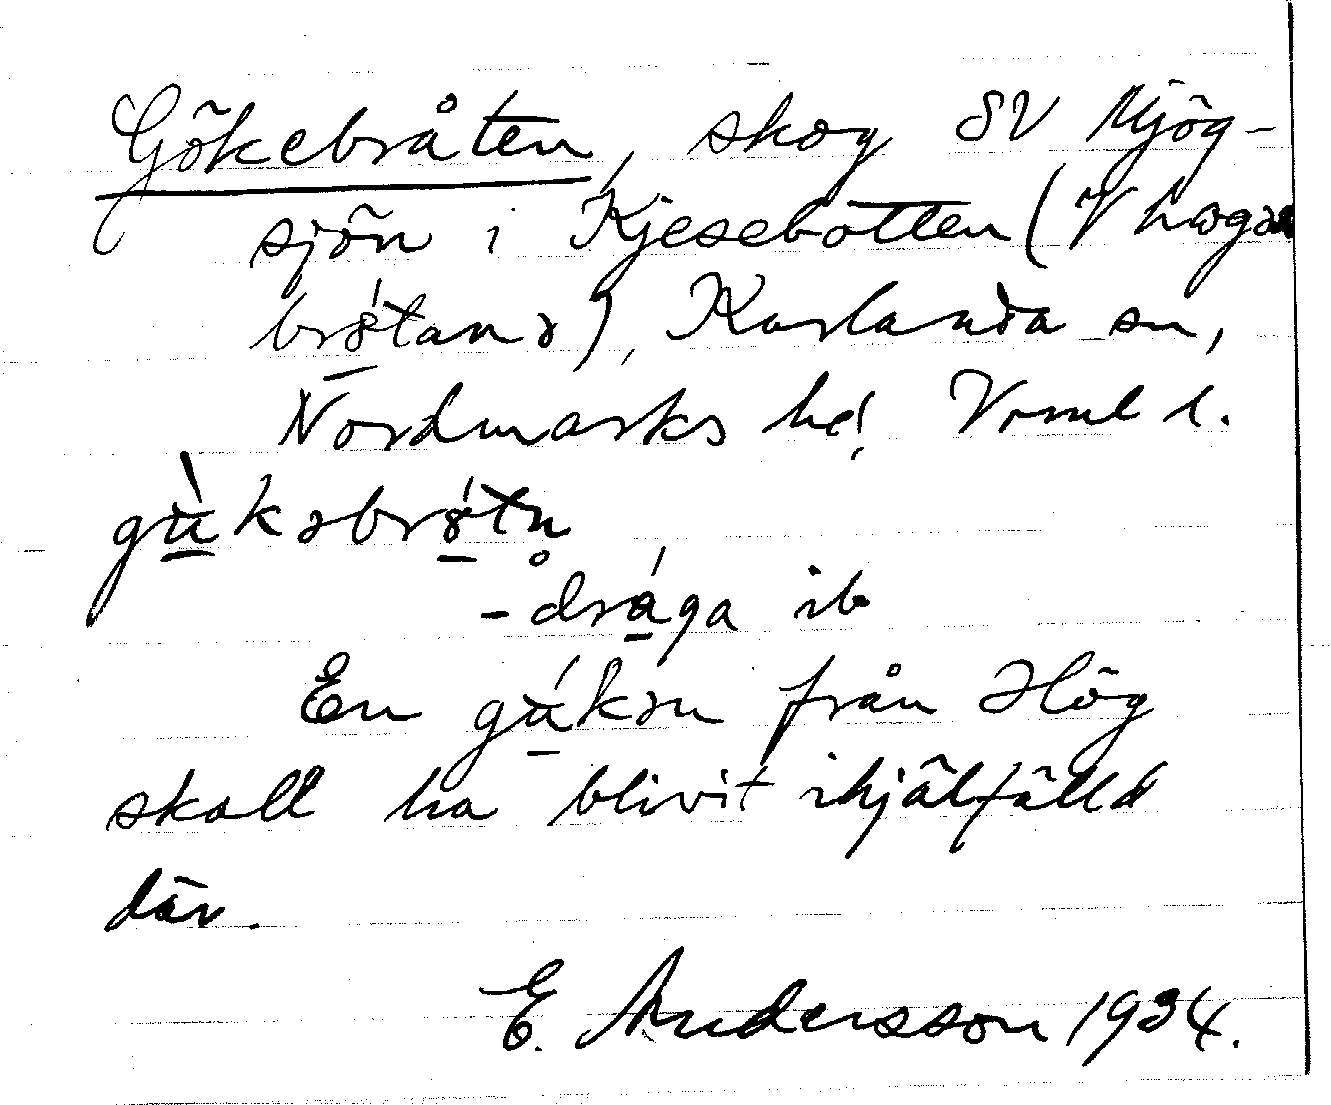 Gökebråten, skog SV Mjög-
sjön i Kjesebotten (V haga
brǿtanə), Karlanda sn,
Nordmarks hd, Vrml l.
gùkəbrǿtn̥
-drága ib
En gúkən från Hög
skall ha blivit ihjälfälld
där.
E. Andersson 1934.